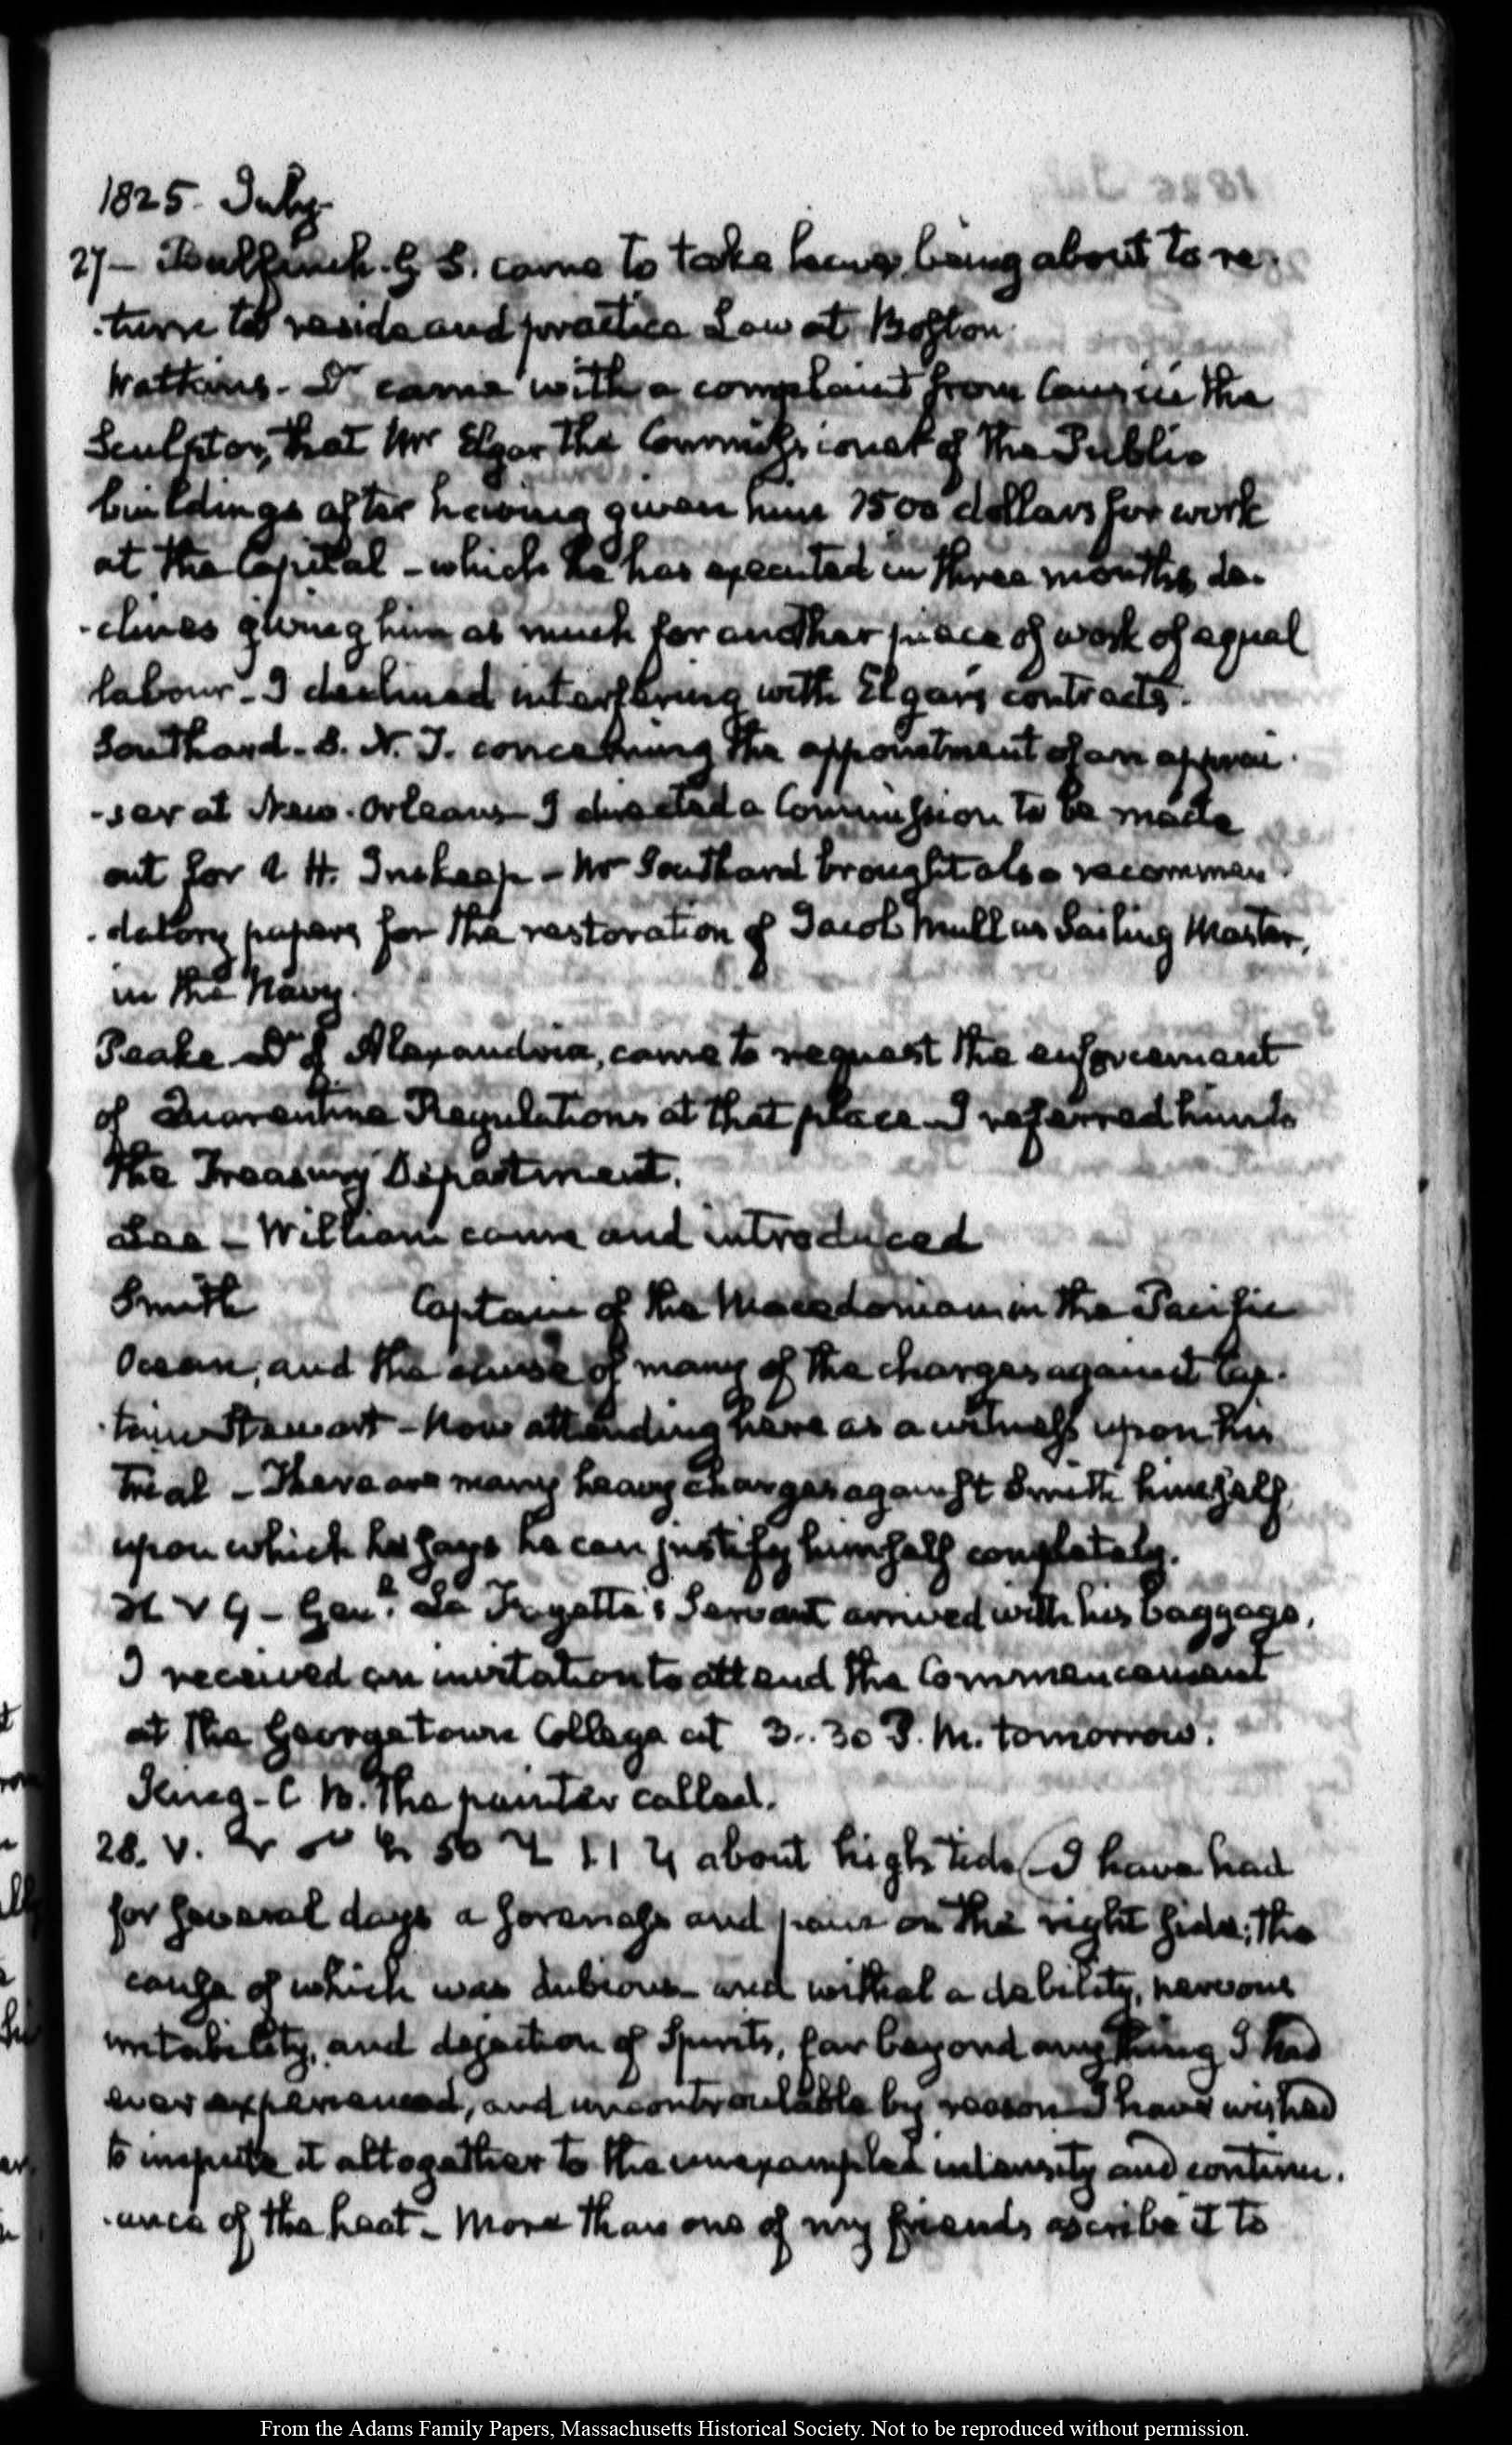 1825. July.
27– Bulfinch. G S. came to take leave, being about to re-
-turn to reside and practice Law at Boston.
Watkins. Dr came with a complaint from Causici the
Sculptor, that Mr Elgar the Commissioner of the Public
buildings after having given him 1500 dollars for work
at the Capital – which he has executed in three months, de-
-clines giving him as much for another piece of work of equal
labour – I declined interfering with Elgar's contracts.
Southard. S. N. J. concerning the appointment of an apprai-
-ser at New-Orleans – I directed a Commission to be made
out for H. Inskeep – Mr Southard brought also recommen-
-datory papers for the restoration of Jacob Mull as Sailing Master,
in the Navy.
Peake Dr of Alexandria, came to request the enforcement
of Quarentine Regulations at that place – I referred him to
the Treasury Department.
Lee – William came and introduced
Smith Captain of the Macedonian in the Pacific
Ocean, and the cause of many of the charges against Cap-
-tain Stewart – Now attending here as a witness upon his
trial – There are many heavy charges against Smith himself,
upon which he says he can justify himself completely.
Genl. La Fayette's Servant arrived with his baggage.
I received an invitation to attend the Commencement
at the Georgetown College at 3..30 P.M. tomorrow.
King – C B. the painter called.
28. V. about high tide. I have had
for several days a soreness and pain on the right side; the
cause of which was dubious – and withal a debility, nervous
irritability, and dejection of Spirits, far beyond any thing I had
ever experienced, and uncontroulable by reason – I have wished
to impute it altogether to the unexampled intensity and continu-
-ance of the heat – More than one of my friends ascribe it to
From the Adams Family Papers, Massachusetts Historical Society. Not to be reproduced without permission.